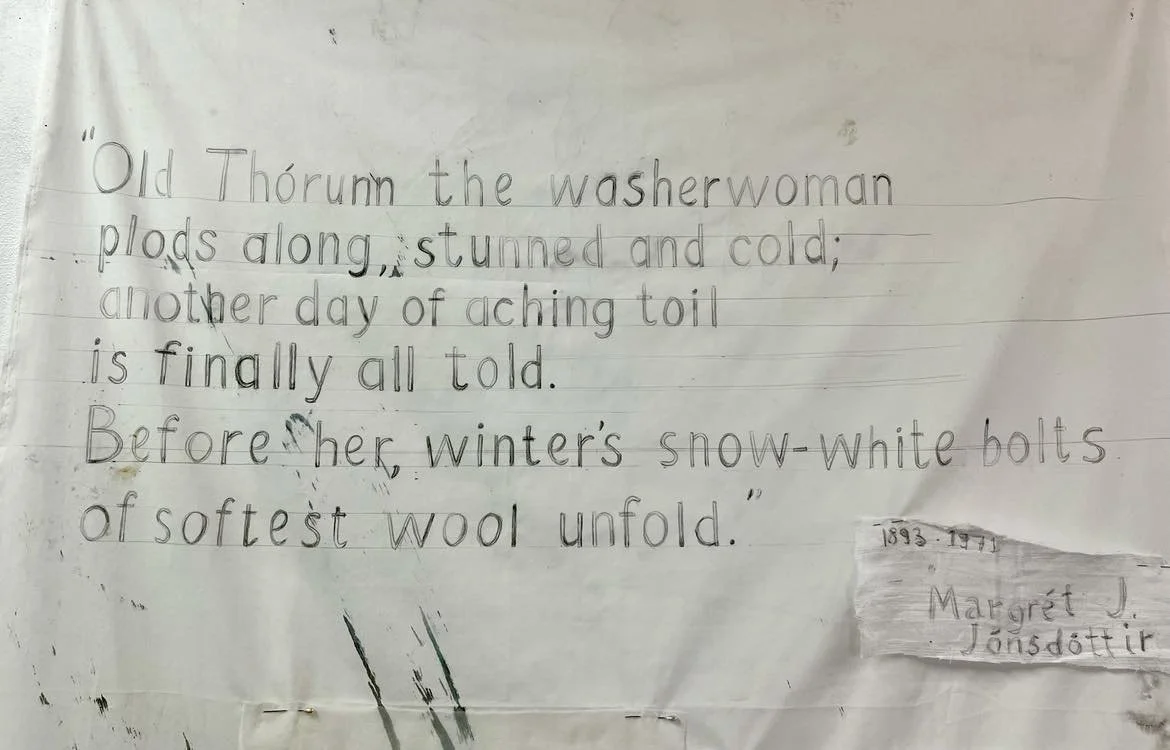 "Old Thórunn the washerwoman
plods along, stunned and cold;
another day of aching toil
is finally all told.
Before her, winter's snow-white bolts
of softest wool unfold."
1893 - 1971
Margrét J.
Jónsdóttir